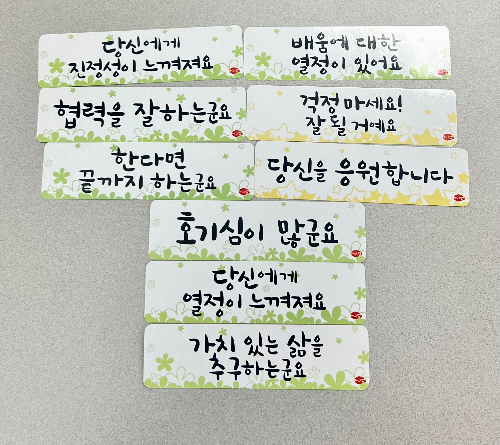 당신에게
진정성이 느껴져요
배움에 대한
열정이 있어요
협력을 잘하는군요
걱정 마세요!
잘 될 거예요
한다면
끝까지 하는군요
당신을 응원합니다
호기심이 많군요
당신에게
열정이 느껴져요
가치 있는 삶을
추구하는군요